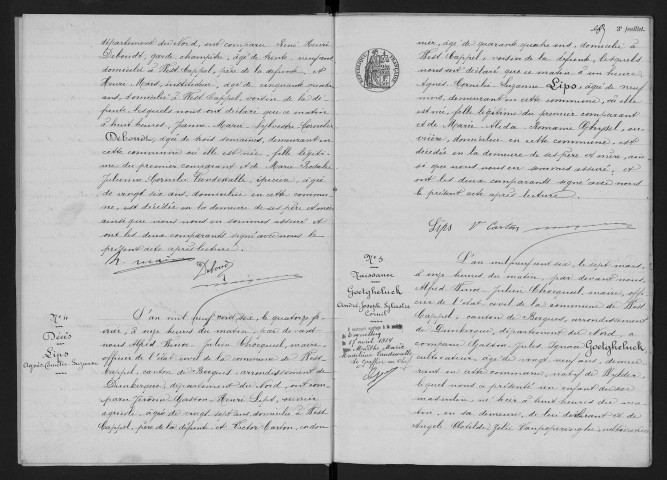 département du Nord, ont comparu René Henri
Deboudt, garde champêtre, âgé de trente neuf ans
domicilié à West Cappel, père de la défunte, et
Henri Maes, instituteur, âgé de cinquante quatre
ans, domicilié à West Cappel, voisin de la dé-
funte, lesquels nous ont déclaré que ce matin
à huit heures, Jeanne Marie Sylvestre Cornélie
Deboudt, âgée de trois semaines, demeurant en
cette commune où elle est née, fille légiti-
me du premier comparant et de Marie Rosalie
Julienne Cornélie Vandewalle épicière, âgée
de vingt six ans, domiciliée en cette commu-
ne, est décédée en la demeure de ses père et mère
ainsi que nous nous en sommes assuré et
ont les deux comparants signé avec nous le
présent acte après lecture.
Deboudt
N° 4
Décès
Lips
Agnès Cornélie Suzanne
L'an mil neuf cent six, le quatorze fé-
vrier, à onze heures du matin, par devant
nous Alfred Winoc Julien Chocqueel, maire
officier de l'état civil de la commune de West
Cappel, canton de Bergues arrondissement de
Dunkerque, département du Nord, ont com-
paru Jérôme Gaston Henri Lips, ouvrier
agricole, âgé de vingt sept ans, domicilié à West
Cappel, père de la défunte et Victor Carton, cordon
2e feuillet.
nier, âgé de quarante quatre ans, domicilié à
West Cappel, voisin de la défunte, lesquels
nous ont déclaré que ce matin à une heure
Agnès Cornélie Suzanne Lips, âgée de neuf
mois, demeurant en cette commune, où elle
est née, fille légitime du premier comparant
et de Marie Alida Romaine Ghyssel, ou-
vrière, domiciliée en cette commune, est
décédée en la demeure de ses père et mère, ain-
si que nous nous en sommes assuré, et
ont les deux comparants signé avec nous
le présent acte après lecture.
Lips Vr Carton
N° 3
Naissance
Goetgheluck
André Joseph Sylvestre
Cornil
L'an mil neuf cent six, le sept mars,
à onze heures du matin, par devant nous
Alfred Winoc Julien Chocqueel, maire, offi-
cier de l'état civil de la commune de West
Cappel, canton de Bergues, arrondissement
de Dunkerque, département du Nord, a
comparu Gaston Jules Ignace Goetgheluck,
cultivateur, âgé de vingt neuf ans, demeu-
rant en cette commune, natif de Wylder,
lequel nous a présenté un enfant du sexe
masculin né hier à huit heures du ma-
tin, en sa demeure, de lui déclarant et de
Angèle Clotilde Zélie